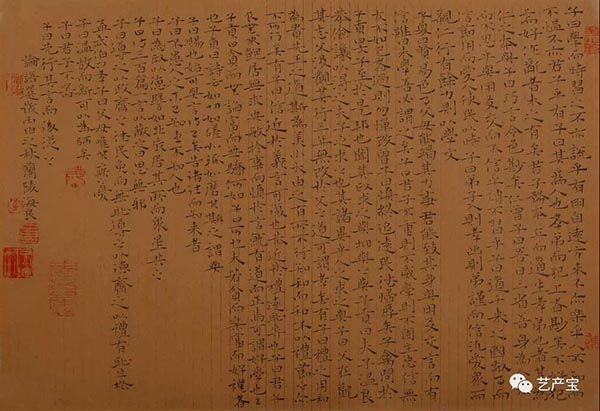 子曰學而時習之不亦說乎有朋自遠方来不亦樂乎人不知而
不愠不亦君子乎有子曰其為人也孝弟而犯上者鮮矣不好犯
上而好作亂者未之有矣君子務本本立而道生孝弟也者其為
仁之本與子曰巧言令色鮮矣仁曾子曰吾日三省吾身為人謀
而不忠乎與朋友交而不信乎傳不習乎子曰道千乘之國敬事而
信節用而愛人使民以時子曰弟子入則孝出則弟謹而信汎愛衆而
親仁行有餘力則以學文
子夏曰賢賢易色事父母能竭其力事君能致其身與朋友交言而有
信雖曰未學吾必謂之學矣子曰君子不重則不威學則不固主忠信無
友不如己者過則勿憚改曾子曰慎終追遠民德歸厚矣子禽問於
子貢曰夫子至於是邦也聞其政求之與抑與之與子貢曰夫子温良
恭儉讓以得之夫子之求之也其諸異乎人之求之與子曰父在觀
其志父没觀其行三年無改於父之道可謂孝矣有子曰禮之用和
為貴先王之道斯為美小大由之有所不行知和而和不以禮節之亦
不可行也有子曰信近於義言可復也恭近於禮遠恥辱也子曰君子
食無求飽居無求安敏於事而慎於言就有道而正焉可謂好學也已
子貢曰貧而無諂富而無驕何如子曰可也未若貧而樂富而好禮者
也子貢曰詩云如切如磋如琢如磨其斯之謂與
子曰賜也始可與言詩已矣告諸往而知来者
子曰不患人之不己知患不知人也
子曰為政以德譬如北辰居其所而衆星共之
子曰詩三百一言以蔽之曰思無邪
子曰道之以政齊之以刑民免而無恥道之以德齊之以禮有恥且格
孟武伯問孝子曰父母唯其疾之憂
子曰温故而知新可以為師矣
子曰君子不器
子曰先行其言而後從之
論語
艺产宝